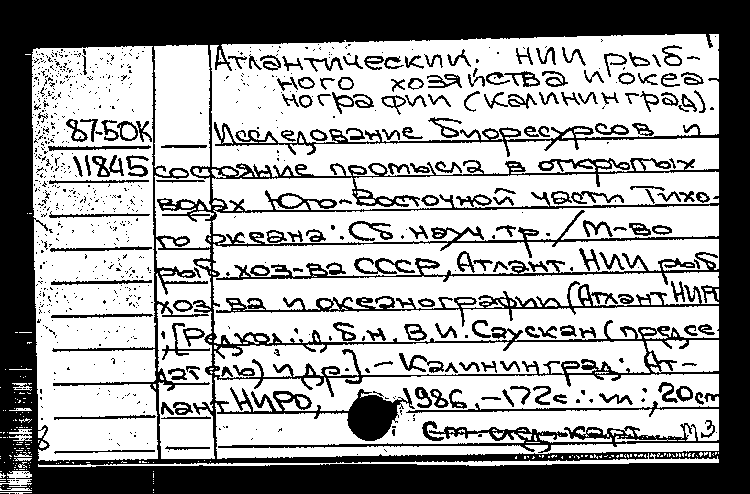 Атлантический. НИИ рыб-
ного хозяйства и океа-
нографии (Калининград).
87-50К Исследование биоресурсов и
11845 состояние промысла в открытых
водах Юго-Восточной части Тихо-
го океана: Сб. науч. тр. / М-во
рыб. хоз-ва СССР, Атлант. НИИ рыб.
хоз-ва и океанографии (АтлантНИРО)
; [Редкол.: д.б.н. В.И. Саускан (предсе-
датель) и др.]. - Калининград: Ат-
лантНИРО, 1986. - 172 с.: ил.; 20 см
См. след. карт. М.З